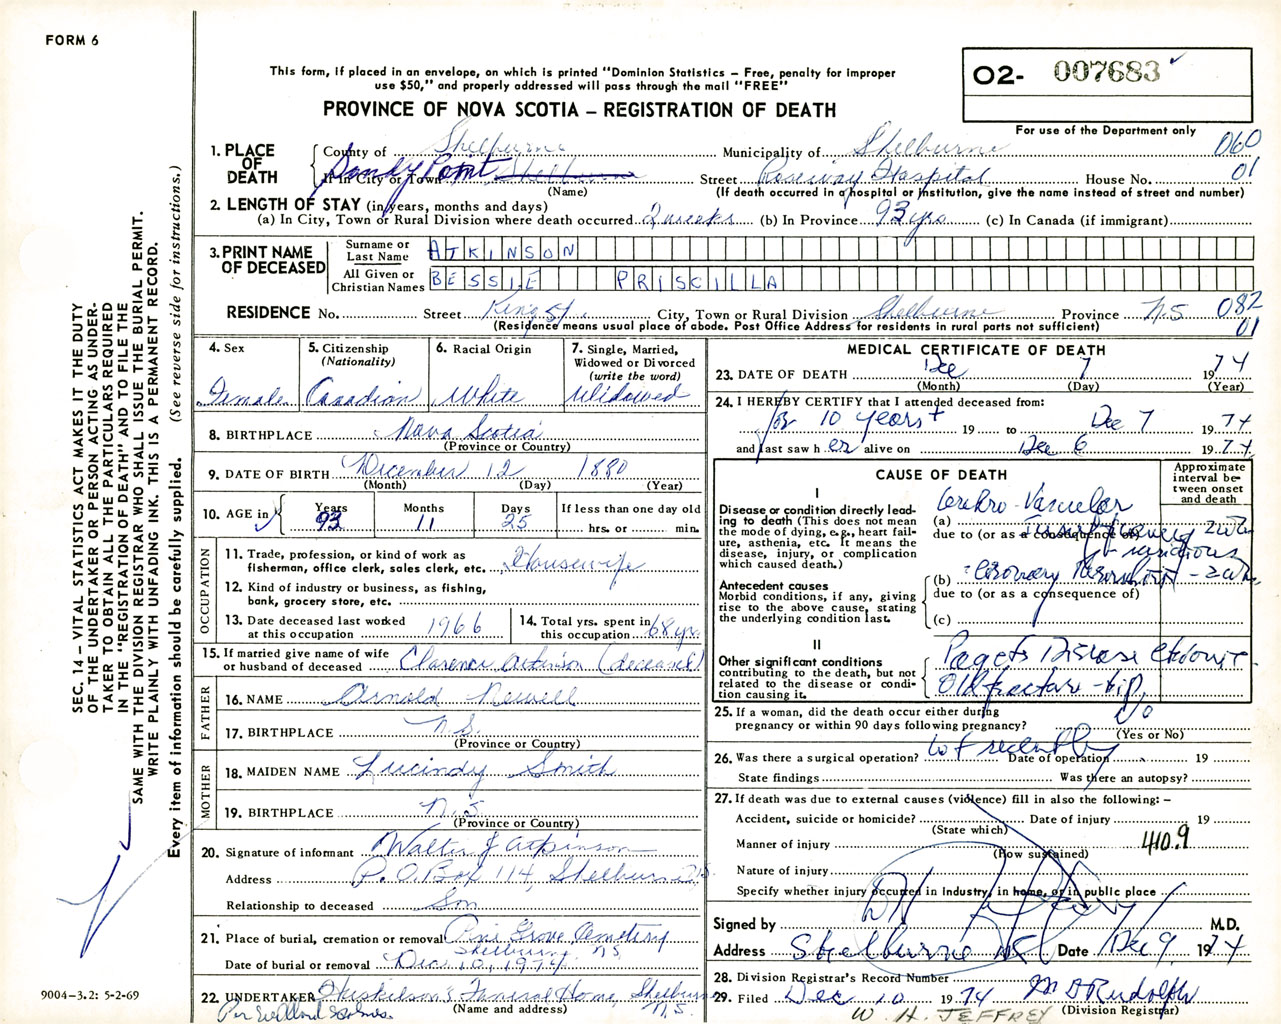 FORM 6
This form, if placed in an envelope, on which is printed "Dominion Statistics – Free, penalty for improper
use $50," and properly addressed will pass through the mail "FREE"
PROVINCE OF NOVA SCOTIA – REGISTRATION OF DEATH
O2- 007683
For use of the Department only
060
01
1. PLACE OF DEATH County of Shelburne Municipality of Shelburne
If in City or Town Sandy Point Shelburne Street Roseway Hospital House No.
(Name) (If death occurred in a hospital or institution, give the name instead of street and number)
2. LENGTH OF STAY (in years, months and days)
(a) In City, Town or Rural Division where death occurred 2 weeks (b) In Province 93 yrs (c) In Canada (if immigrant)
3. PRINT NAME OF DECEASED
Surname or Last Name ATKINSON
All Given or Christian Names BESSIE PRISCILLA
RESIDENCE No. Street King St. City, Town or Rural Division Shelburne Province N.S 082
01
(Residence means usual place of abode. Post Office Address for residents in rural parts not sufficient)
4. Sex
Female
5. Citizenship
(Nationality)
Canadian
6. Racial Origin
White
7. Single, Married,
Widowed or Divorced
(write the word)
Widowed
8. BIRTHPLACE Nova Scotia
(Province or Country)
9. DATE OF BIRTH December 12 1880
(Month) (Day) (Year)
10. AGE in Years Months Days If less than one day old
93 11 25 hrs. or min.
OCCUPATION
11. Trade, profession, or kind of work as
fisherman, office clerk, sales clerk, etc. Housewife
12. Kind of industry or business, as fishing,
bank, grocery store, etc.
13. Date deceased last worked
at this occupation 1966
14. Total yrs. spent in
this occupation 68 yr.
15. If married give name of wife
or husband of deceased Clarence Atkinson (deceased)
FATHER
16. NAME Arnold Newell
17. BIRTHPLACE N.S.
(Province or Country)
MOTHER
18. MAIDEN NAME Lucindy Smith
19. BIRTHPLACE N.S.
(Province or Country)
20. Signature of informant Walter J Atkinson
Address P.O. Box 114, Shelburne, N.S.
Relationship to deceased Son
21. Place of burial, cremation or removal Pine Grove Cemetery
Shelburne N.S.
Date of burial or removal Dec. 10, 1974
22. UNDERTAKER Funeral Home, Shelburne
N.S.
(Name and address)
MEDICAL CERTIFICATE OF DEATH
23. DATE OF DEATH Dec 7 1974
(Month) (Day) (Year)
24. I HEREBY CERTIFY that I attended deceased from:
for 10 years + 19 to Dec 7 1974
and last saw her alive on Dec 6 1974
CAUSE OF DEATH
Approximate
interval be-
tween onset
and death
I
Disease or condition directly lead-
ing to death (This does not mean
the mode of dying, e.g., heart fail-
ure, asthenia, etc. It means the
disease, injury, or complication
which caused death.)
(a) Cerebro-Vascular
Insufficiency
due to (or as a consequence of)
Antecedent causes
Morbid conditions, if any, giving
rise to the above cause, stating
the underlying condition last.
(b) Coronary
due to (or as a consequence of)
(c)
II
Other significant conditions
contributing to the death, but not
related to the disease or condi-
tion causing it.
Pagets Disease
Old fracture - hip,
25. If a woman, did the death occur either during
pregnancy or within 90 days following pregnancy? No
(Yes or No)
26. Was there a surgical operation? Not recently Date of operation 19
State findings Was there an autopsy?
27. If death was due to external causes (violence) fill in also the following: –
Accident, suicide or homicide? Date of injury 19
(State which)
Manner of injury 410.9
(How sustained)
Nature of injury
Specify whether injury occurred in industry, in home, or in public place
Signed by M.D.
Address Shelburne NS Date Dec 9, 1974
28. Division Registrar's Record Number
29. Filed Dec 10 1974 M D Rudolph
(Division Registrar)
W. H. JEFFREY
SEC. 14 – VITAL STATISTICS ACT MAKES IT THE DUTY
OF THE UNDERTAKER OR PERSON ACTING AS UNDER-
TAKER TO OBTAIN ALL THE PARTICULARS REQUIRED
IN THE "REGISTRATION OF DEATH" AND TO FILE THE
SAME WITH THE DIVISION REGISTRAR WHO SHALL ISSUE THE BURIAL PERMIT.
WRITE PLAINLY WITH UNFADING INK. THIS IS A PERMANENT RECORD.
Every item of information should be carefully supplied. (See reverse side for instructions.)
9004-3.2: 5-2-69